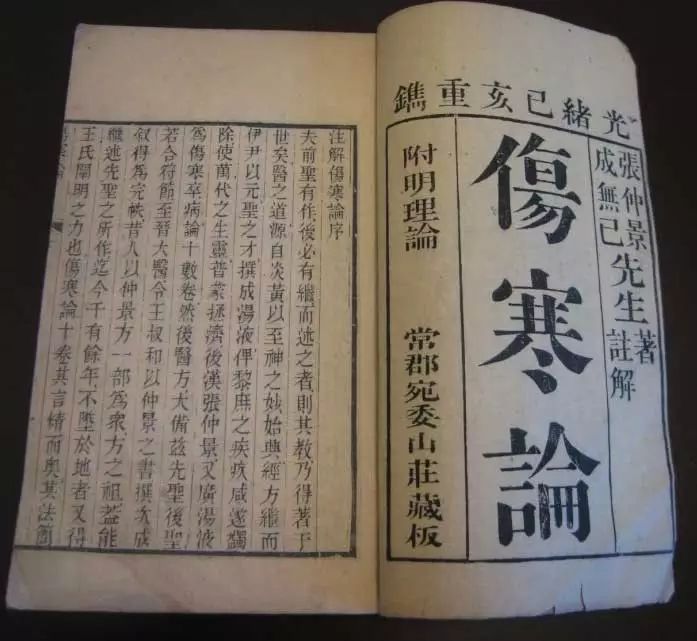 光緒己亥重鐫
張仲景
成無己
先生
著
註解
傷寒論
附明理論
常郡宛委山莊藏板
注解傷寒論序
夫前聖有作後必有繼而述之者則其教乃得著于
世矣醫之道源自炎黃以至神之妙始興經方繼而
伊尹以元聖之才撰成湯液俾黎庶之疾疢咸遂蠲
除使萬代之生靈普蒙拯濟後漢張仲景又廣湯液
爲傷寒卒病論十數卷然後醫方大備茲先聖後聖
若合符節至晉大醫令王叔和以仲景之書撰次成
叙得爲完帙昔人以仲景方一部爲衆方之祖蓋能
繼述先聖之所作迄今千有餘年不墜於地者又得
王氏闡明之力也傷寒論十卷其言精而奧其法簡